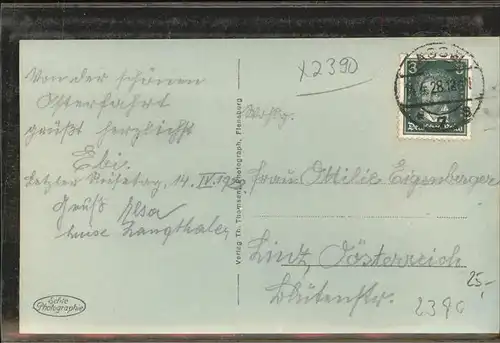 Von der schönen
Osterfahrt
grüßt herzlichst
Ebi.
Letzter Reisetag, 14. IV. 1928
Gruß Elsa
Luise Langthaler
Echte
Photographie
Verlag Th. Thomsen, Photograph, Flensburg
x2390
3
28.12
Wohlg.
Frau Ottilie Eigenberger
Linz, Österreich
Blütenstr.
25,-
2390